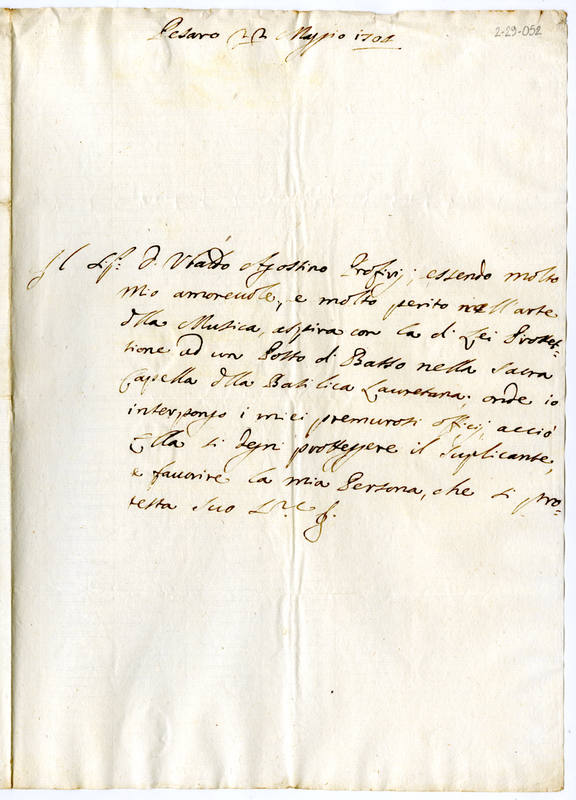 2-29-052
Pesaro 22 Maggio 1701
Il Sig.r D. Agostino essendo molto
mio amorevole, e molto perito nell'arte
dlla Musica, aspira con la di Lei Protet=
tione ad un Posto di Basso nella Sacra
Capella dlla Basilica Lauretana; onde io
interpongo i miei premurosi officij, acciò
Ella si degni proteggere il suplicante,
e favorire la mia Persona, che si pro=
testa suo